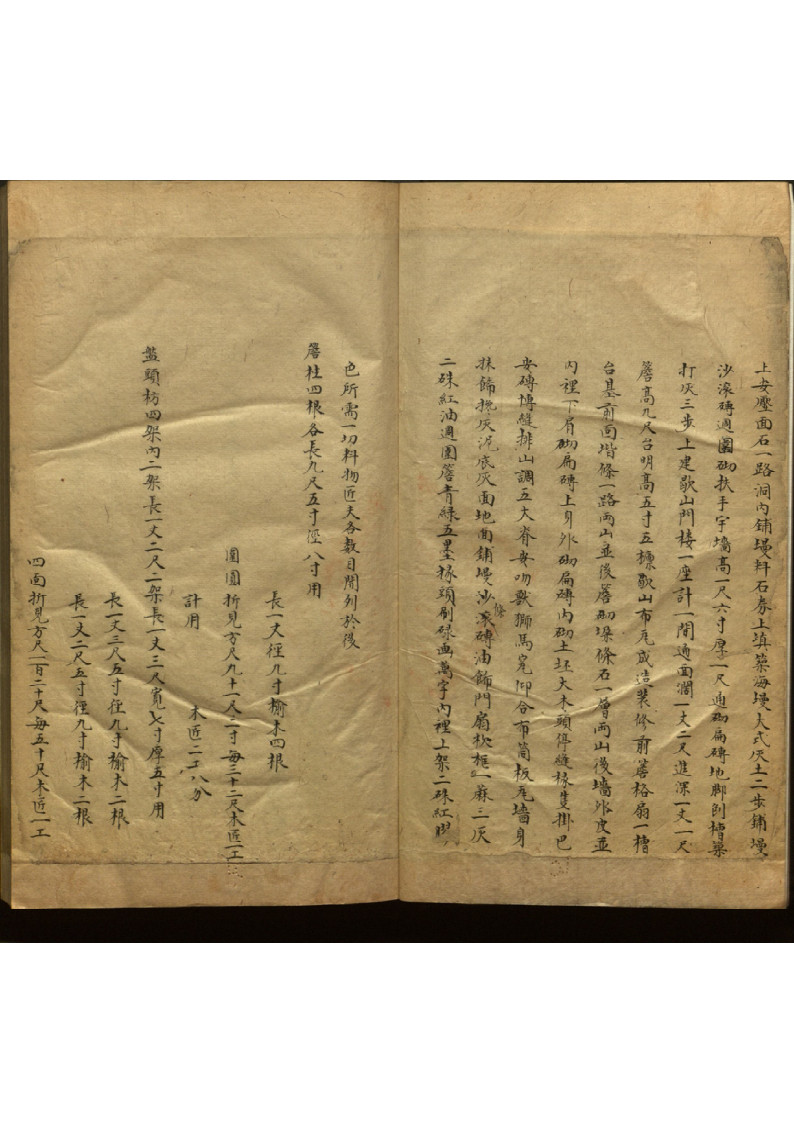 上安壓面石一路洞內鋪墁料石券上填築海墁大式灰土二步鋪墁
沙滾磚週圍砌扶手宇墻高一尺六寸厚一尺通砌扁磚地脚刨槽築
打灰三步上建歇山門樓一座計一間通面濶一丈二尺進深一丈一尺
簷高九尺台明高五寸五檩歇山布瓦成造裝修前簷槅扇一槽
台基前面堦條一路兩山並後簷砌垛條石一層兩山後墻外皮並
內裡下肩砌扁磚上身外砌扁磚內砌土坯大木頭停縫椽隻掛巴
安磚博縫排山調五大脊安吻獸獅馬完仰合布筒板瓦墻身
抹飾挽灰泥底灰面地面鋪墁沙滾條磚油飾門扇杴框一麻三灰
二硃紅油週圍簷青綠五墨椽頭刷碌画萬字內裡上架二硃紅膠
色所需一切料物匠夫各數目開列於後
簷柱四根各長九尺五寸徑八寸用
長一丈徑九寸榆木四根
圍圓折見方尺九十一尺二寸每三十二尺木匠一工
計用
木匠二工八分
盤頭枋四架內二架長一丈二尺二架長一丈三尺寬七寸厚五寸用
長一丈三尺五寸徑九寸榆木二根
長一丈二尺五寸徑九寸榆木二根
四面折見方尺一百二十尺每五十尺木匠一工